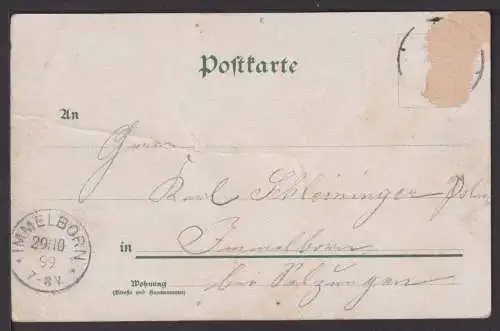 Postkarte
An
Herrn
Karl Schleininger
in Immelborn
Wohnung
(Straße und Hausnummer)
bei Salzungen
IMMELBORN
29.10
99
7-8V